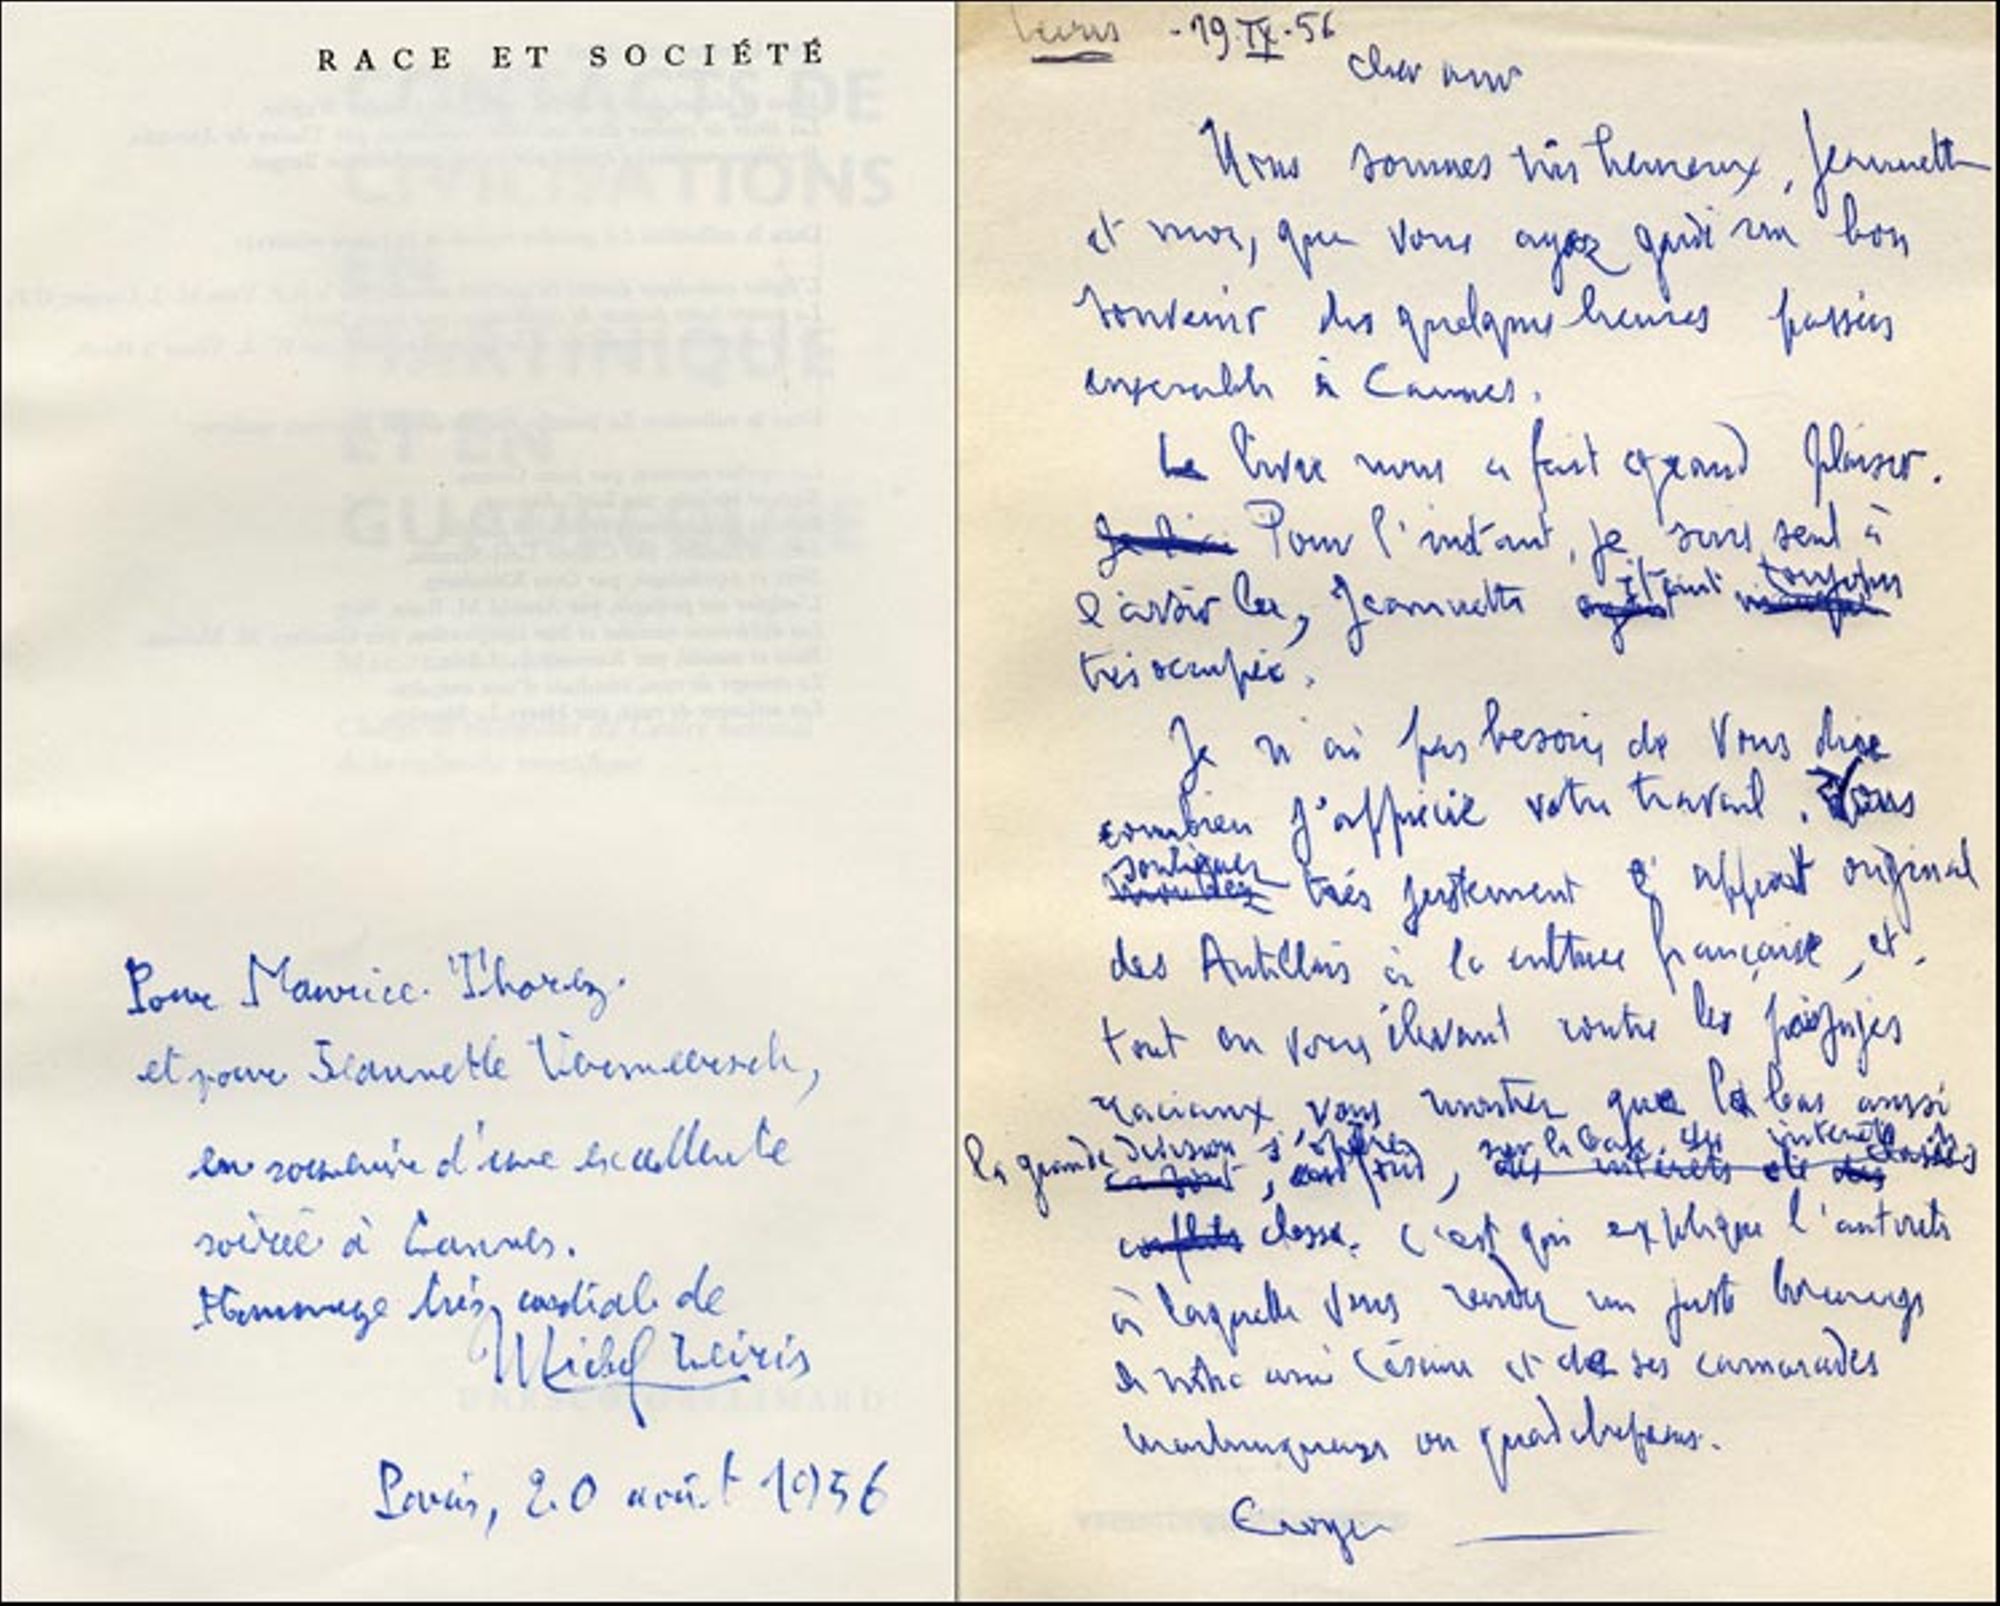 RACE ET SOCIÉTÉ
Pour Maurice Thorez
et pour Jeannette Vermeersch,
en souvenir d'une excellente
soirée à Cannes.
Hommage très cordial de
Michel Leiris
Paris, 20 août 1956
Leiris - 19.IX.56
Cher ami
Nous sommes très heureux, Jeannette
et moi, que vous ayez gardé un bon
souvenir des quelques heures passées
ensemble à Cannes.
Le livre nous a fait grand plaisir.
Pour l'instant, je suis seul à
l'avoir lu, Jeannette étant toujours
très occupée.
Je n'ai pas besoin de vous dire
combien j'apprécie votre travail. Vous
soulignez
très justement l'apport original
des Antillais à la culture française, et,
tout en vous élevant contre les préjugés
raciaux vous montrez que là bas aussi
la grande division s'opère, au fond, sur la base des intérêts de
classe. C'est qui explique l'autorité
à laquelle vous rendez un juste hommage
de notre ami Césaire et de ses camarades
martiniquais ou guadeloupéens.
Croyez
UNESCO GALLIMARD
CONTACTS DE
CIVILISATIONS
EN
MARTINIQUE
ET EN
GUADELOUPE